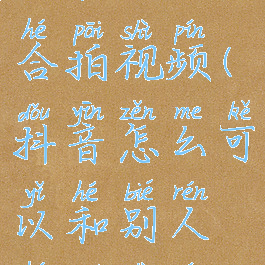 hé pāi shì pín
合拍视频(
dǒu yīn zěn me kě
抖音怎么可
yǐ hé bié rén
以和别人